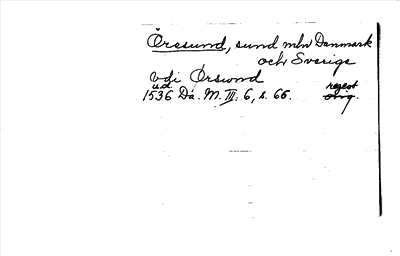 Öresund, sund mln Danmark
och Sverige
vdi Ørswnd
u.d. regest
1536 Da. M. III. 6, s. 66. orig.